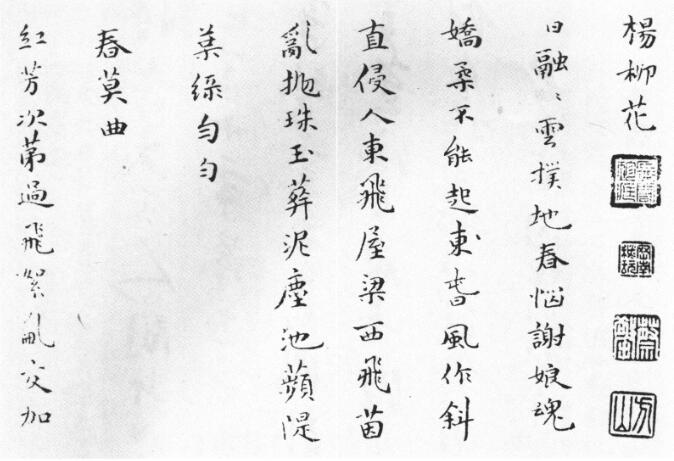 楊柳花
日融〻雲撲地春惱謝娘魂
嬌柔不能起東旹風作斜
直侵人東飛屋梁西飛茵
亂抛珠玉葬泥塵池蘋隄
葉綠勻勻
春莫曲
紅芳次第過飛絮亂交加